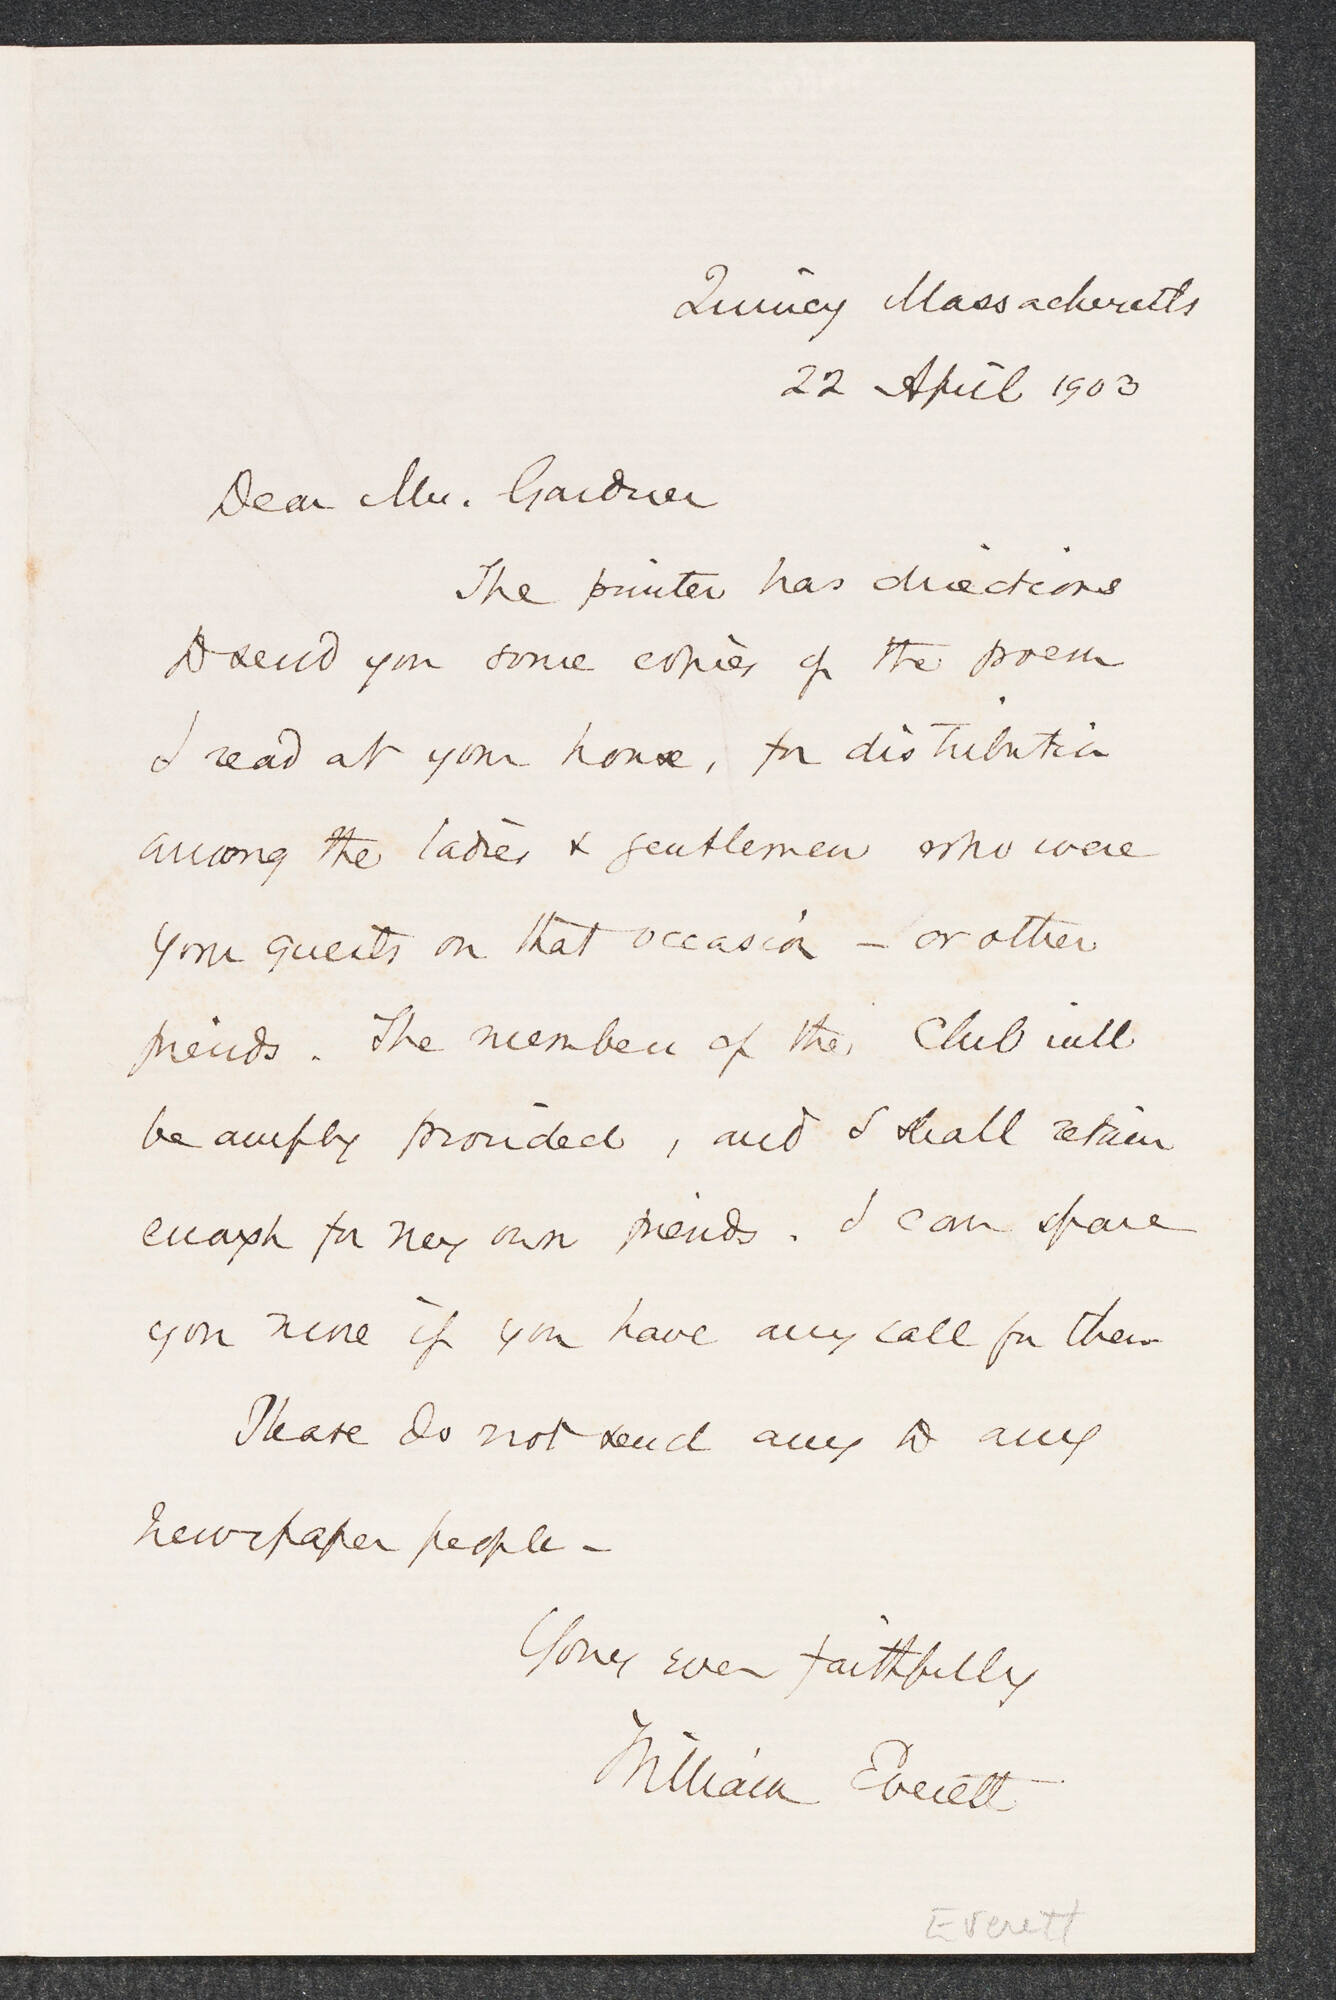 Quincy Massachusetts
22 April 1903
Dear Mrs. Gardner
The printer has directions
to send you some copies of the poem
I read at your house, for distribution
among the ladies & gentlemen who were
your guests on that occasion - or other
friends. The members of the Club will
be amply provided, and I shall retain
enough for my own friends. I can spare
you more if you have any call for them
Please do not send any to any
newspaper people -
Yours ever faithfully
William Everett
Everett